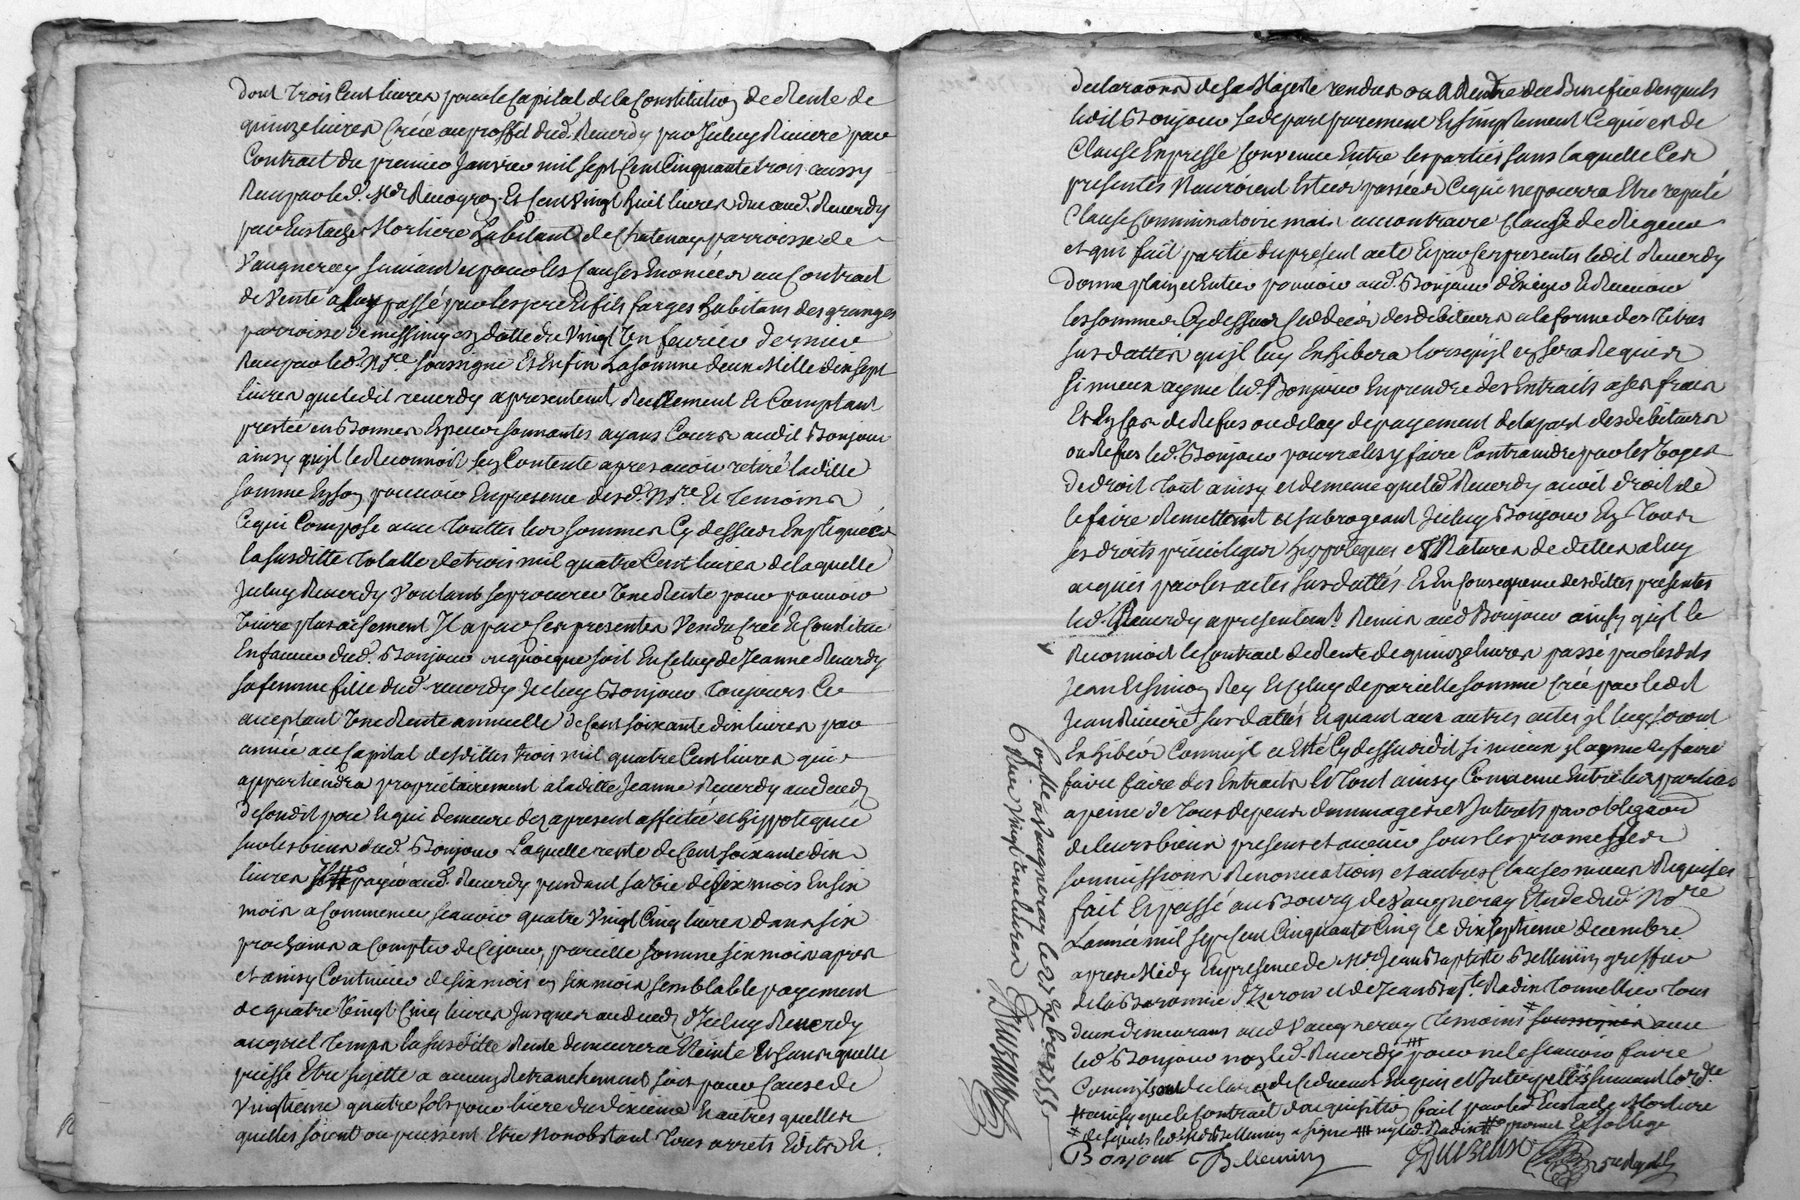 dont trois Cent livres pour le Capital de la Constitution de Rente de
quinze livres Créée au proffit dud. Reverdy par Jeluy Riviere par
Contract du premier Janvier mil sept Cent Cinquante trois aussy
Reçu par led. Me et Cent Vingt huit livres due aud. Reverdy
par Eustache Morliere habitant de Chatenay parroisse de
Vaugneray suivant et pour les Causes Enoncées au Contract
de Vente a luy passé par les pere et fils farges habitans des granges
parroisse de messimy en datte du Vingt Un fevrier dernier
Reçu par led. Nre. soussigné Et Enfin La somme de un Mille dix sept
livres que ledit reverdy a presentemt. Reellement et Comptant
prestée en Bonnes Especes sonnantes ayans Cours audit Bonjour
ainsy quil le Reconnoit sen Contente apres avoir retiré laditte
somme En son pouvoir En presence desd. Nre. Et temoins
Ce qui Compose avec touttes les sommes Cy dessus Expliquées
la susditte totalle de trois mil quatre Cent livres de laquelle
Jceluy Reverdy Voulant se procurer Une Rente pour pouvoir
Vivre plus aisement Il a par Ces presentes Vendu Créé et Constitué
En faveur dud. Bonjour ou quoique soit En Celuy de Jeanne Reverdy
sa femme fille dud. reverdy Jceluy Bonjour toujours Ce
acceptant Une Rente annuelle de Cent soixante dix livres par
année au Capital desdittes trois mil quatre Cent livres qui
appartiendra proprietairement a laditte Jeanne Reverdy au deces
de sondit pere Et qui demeure dez a present affectée et hippotequée
sur les biens dud. Bonjour Laquelle rente de Cent soixante dix
livres payée aud. Reverdy pendant sa Vie de six mois En six
mois a Commencer scavoir quatre Vingt Cinq livres dans six
prochains a Compter de Cejour, pareille somme six mois apres
et ainsy Continuer de six mois en six mois semblable payement
de quatre Vingt Cinq livres Jusques au deces d'Jceluy Reverdy
auquel temps la susditte Rente demeurera Eteinte Et sans quelle
puisse Etre sujette a aucun Retranchement soit pour Cause de
Vingtieme quatre sols pour livre du dixieme Et autres quelles
quelles soient ou puissent Etre Nonobstant tous arrets Edits Et
declaraons. de sa Majesté rendues ou a Rendre du Benefice desquels
ledit Bonjour se depart purement Et simplement Ce qui est de
Clause Expresse Convenue Entre les parties sans laquelle Ces
presentes Nauroient Eté passées Ce qui ne pourra Etre reputé
Clause Comminatoire mais au contraire Clause de Rigeur
et qui fait partie du present acte Et par Ces presentes ledit Reverdy
donne plain et Entier pouvoir aud. Bonjour d'Exiger Et Recevoir
les sommes Cy dessus Cedées des debiteurs a la forme des titres
susdattés quil luy Exhibera lorsquil en sera Requis
si mieux ayme led. Bonjour En prendre des Extraits a ses frais
Et En Cas de Refus ou delay de payement de la part des debiteurs
ou Refus led. Bonjour pourra les y faire Contraindre par les Voyes
de droit tout ainsy et de meme que led. Reverdy avoit droit de
le faire Remettant et subrogeant Jceluy Bonjour En tous
les droits privileges hyppoteques et Natures de dettes a luy
acquis par les actes susdattés Et En Consequence desdittes presentes
led. Reverdy a presentemt. Remis aud. Bonjour ainsy quil le
Reconnoit le Contract de Rente de quinze livres passé par lesdits
Jean Et Simon Rey Et Celuy de pareille somme Créé par ledit
Jean Riviere susdattés Et quant aux autres actes il luy seront
Exhibés Comme il a Eté Cy dessus dit si mieux il ayme En faire
faire faire des Extraits Et tout ainsy Convenu Entre les parties
a peine de tous depens dommages et Interets par obligaon.
de leurs biens presens et avenir sous les promesses
soumissions Renonciations et autres Clauses mieux Requises
fait Et passé au Bourg de Vaugneray Etude dud. Nore.
Lannée mil sept cent Cinquante Cinq le dix septieme decembre
apres Midy En presence de Mr. Jean Baptiste Bellemin greffier
de la Baronnie d'Izeron et de Jean Bapte. Radix tonnellier tous
deux demeurans aud. Vaugneray temoins soussignés avec
led. Bonjour non led. Reverdy pour ne le scavoir faire
Comme il a declaré de Ce Deument Enquis et Interpellés suivant lordce.
ainsy que le Contract d'acquisition fait par led. Eustache Morliere
desquels led. Sr. Bellemin a signé ny led. Radix
Bonjour Bellemin
Controllé a Vaugneray le 27 Xbre 1755
Reçu vingt une livres